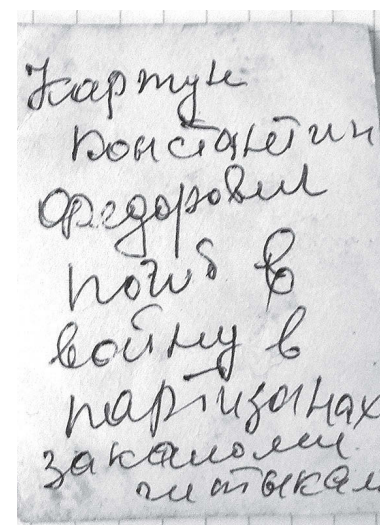 Картун
Константин
Федорович
погиб в
войну в
партизанах
закололи
штыкам